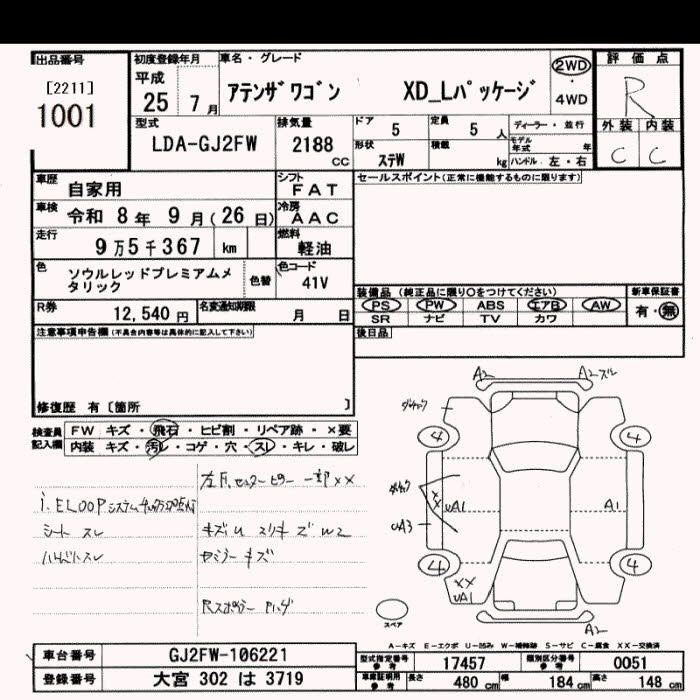 出品番号
[2211]
1001
初度登録年月
平成
25 7 月
車名・グレード
アテンザワゴン XD_Lパッケージ
2WD
・
4WD
評価点
R
外装 内装
C C
型式
LDA-GJ2FW
排気量
2188
CC
ドア 5
定員 5 人
ディーラー・並行
形状
ステW
積載
kg
モデル年式 年
ハンドル 左・右
車歴 自家用
シフト
FAT
セールスポイント(正常に機能するものに限ります)
車検 令和 8 年 9 月( 26 日)
冷房
AAC
走行 9 万 5 千 367 km
燃料
軽油
色 ソウルレッドプレミアムメタリック
色替
色コード
41V
装備品(純正品に限り○をつけてください)
新車保証書
PS PW ABS エアB AW
有・無
SR ナビ TV カワ
R券 12,540 円
名変通知期限 月 日
後日品
注意事項申告欄(不具合内容等は具体的に記入して下さい)
修復歴 有〔箇所 〕
検査員記入欄
FW キズ・飛石・ヒビ割・リペア跡・×要
内装 キズ・汚れ・コゲ・穴・スレ・キレ・破レ
i-ELOOP
シート スレ
センターピラー 一部××
キズ
W2
キズ
A2
A2
4
4
××
UA1
A1
UA3
4
4
××
UA1
A2
スペア
A-キズ E-エクボ U-凹み W-補修跡 S-サビ C-腐食 XX-交換済
車台番号 GJ2FW-106221
登録番号 大宮 302 は 3719
型式指定番号参考 17457
類別区分番号参考 0051
車庫証明用参考 長さ 480 cm 幅 184 cm 高さ 148 cm